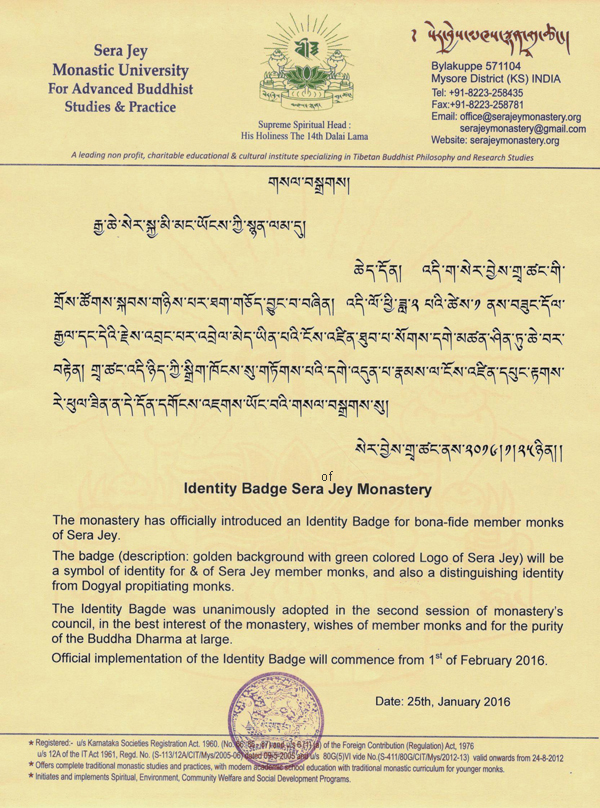 Sera Jey
Monastic University
For Advanced Buddhist
Studies & Practice
Supreme Spiritual Head :
His Holiness The 14th Dalai Lama
Bylakuppe 571104
Mysore District (KS) INDIA
Tel: +91-8223-258435
Fax:+91-8223-258781
Email: office@serajeymonastery.org
serajeymonastery@gmail.com
Website: serajeymonastery.org
A leading non profit, charitable educational & cultural institute specializing in Tibetan Buddhist Philosophy and Research Studies
གསལ་བསྒྲགས།
རྒྱ་ཆེ་སེར་སྐྱ་མི་མང་ཡོངས་ཀྱི་སྙན་ལམ་དུ།
ཆེད་དོན། འདི་ག་སེར་བྱེས་གྲྭ་ཚང་གི་
གྲོས་ཚོགས་སྐབས་གཉིས་པར་ཐག་གཅོད་བྱུང་བ་བཞིན། འདི་ལོ་ཕྱི་ཟླ་༢ པའི་ཚེས་༡ ནས་བཟུང་དོལ་
རྒྱལ་དང་དེའི་རྗེས་འབྲང་པར་འབྲེལ་མེད་ཡིན་པའི་ངོས་འཛིན་ཐུབ་པ་སོགས་དགེ་མཚན་ཤིན་ཏུ་ཆེ་བར་
བརྟེན། གྲྭ་ཚང་འདི་ཉིད་ཀྱི་སྒྲིག་ཁོངས་སུ་གཏོགས་པའི་དགེ་འདུན་པ་རྣམས་ལ་ངོས་འཛིན་དཔུང་རྟགས་
རེ་ཕུལ་ཟིན་ན་དེ་དོན་དགོངས་འཇགས་ཡོང་བའི་གསལ་བསྒྲགས་སུ།
སེར་བྱེས་གྲྭ་ཚང་ནས་༢༠༡༦།༡།༢༥ཉིན།།
of
Identity Badge Sera Jey Monastery
The monastery has officially introduced an Identity Badge for bona-fide member monks
of Sera Jey.
The badge (description: golden background with green colored Logo of Sera Jey) will be
a symbol of identity for & of Sera Jey member monks, and also a distinguishing identity
from Dogyal propitiating monks.
The Identity Bagde was unanimously adopted in the second session of monastery's
council, in the best interest of the monastery, wishes of member monks and for the purity
of the Buddha Dharma at large.
Official implementation of the Identity Badge will commence from 1st of February 2016.
Date: 25th, January 2016
* Registered:- u/s Karnataka Societies Registration Act. 1960. (No. and u/s 6 (1) (a) of the Foreign Contribution (Regulation) Act, 1976
u/s 12A of the IT Act 1961, Regd. No. (S-113/12A/CIT/Mys/2005-06) dated 09-5-2005 and u/s 80G(5)VI vide No.(S-411/80G/CIT/Mys/2012-13) valid onwards from 24-8-2012
* Offers complete traditional monastic studies and practices, with modern academic school education with traditional monastic curriculum for younger monks.
* Initiates and implements Spiritual, Environment, Community Welfare and Social Development Programs.